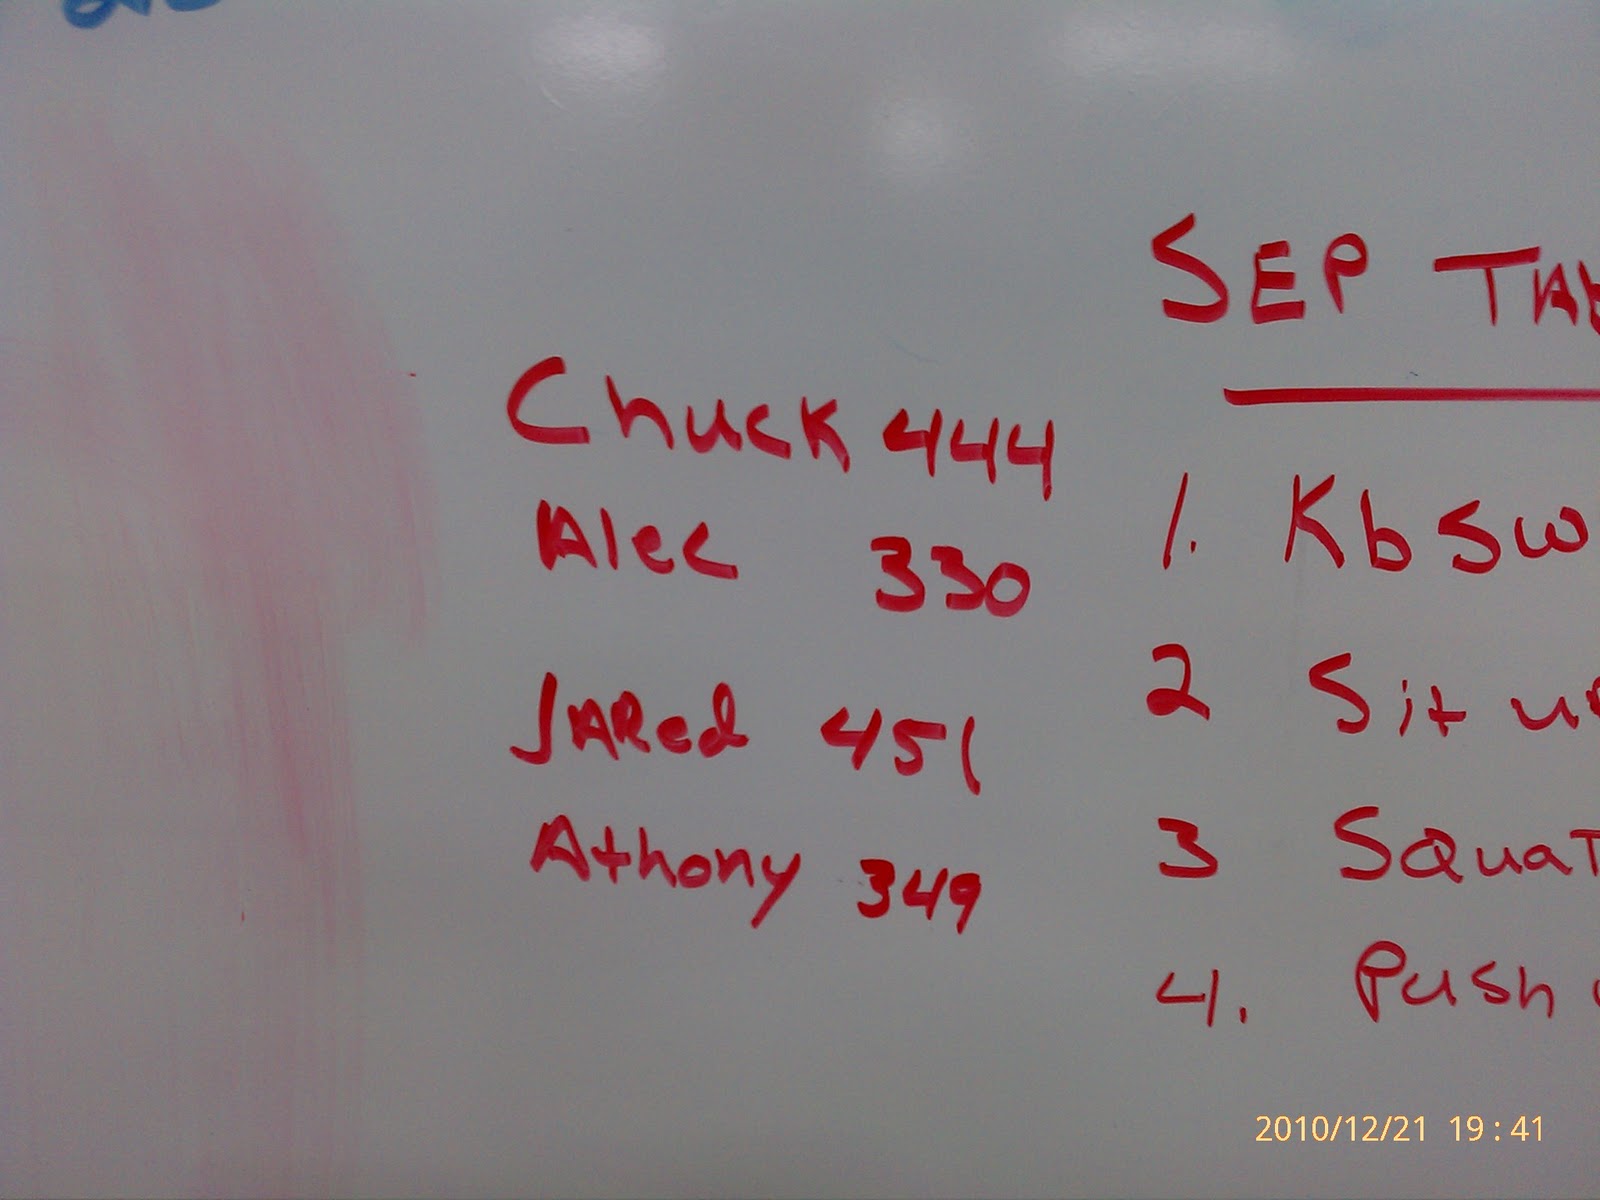 SEP TAB
Chuck 444
Alec 330
JARed 451
Athony 349
1. Kb Sw
2 Sit up
3 SquaT
4. Push
2010/12/21 19:41